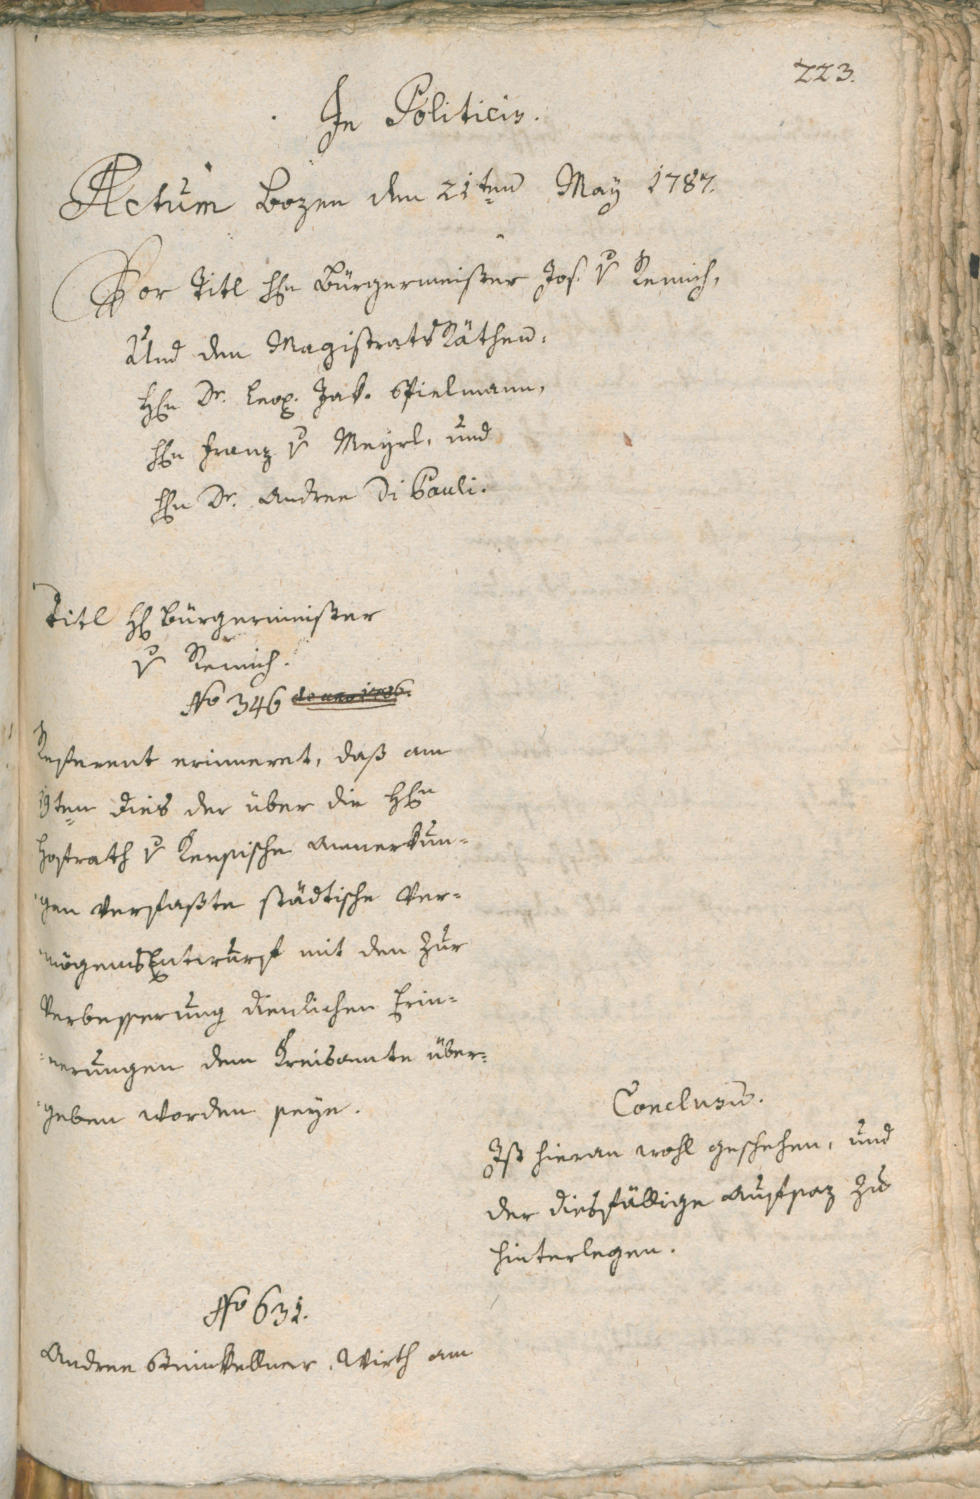 223.
In Politicis.
Actum Bozen den 21ten May 1787.
Vor Titl Hhn Bürgermeister Jos. v Remich,
Und den Magistrats Räthen,
Hhn Dr. Leop. Jak. Spielmann,
Hhn Franz v Meyrl, und
Hhn Dr. Andree Di Pauli.
Titl Hh Bürgermeister
v Remich.
No 346 de ano 1786.
Referent erinneret, daß am
19ten dies der über die Hhn
Hofrath v Kempische Anmerkun=
gen verfaßte städtische Ver=
mögens Entwurf mit den zur
Verbesserung dienlichen Erin=
nerungen dem Kreisamte über=
geben worden seye.
Conclusum.
Ist hieran wohl geschehen, und
der diesfällige Aufsaz zu
hinterlegen.
No 631.
Andree Steinkellner, Wirth am